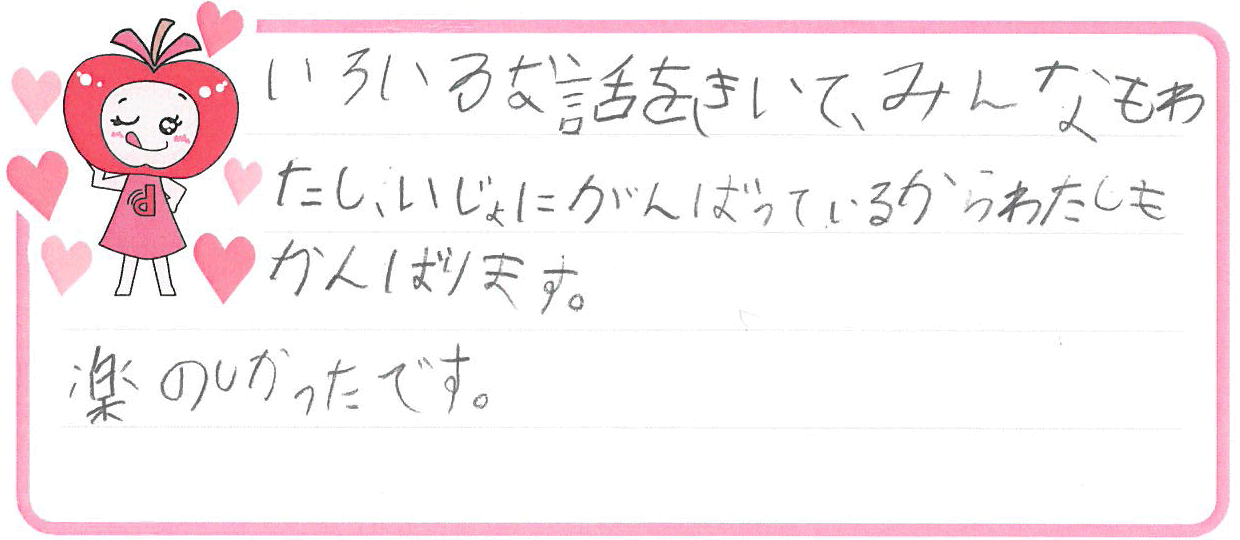 いろいろな話をきいて、みんなもわ
たし、いじょにがんばっているからわたしも
がんばります。
楽のしかったです。